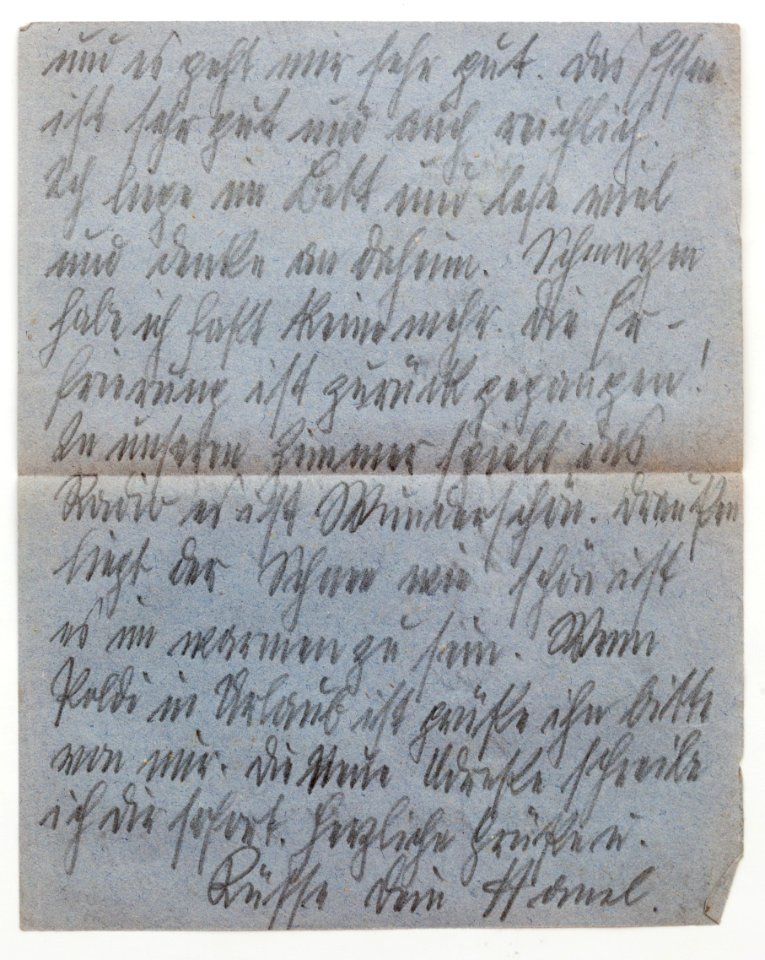 und es geht mir sehr gut. Das Essen
ist sehr gut und auch reichlich.
Ich liege im Bett und lese viel
und denke an daheim. Schmerzen
habe ich fast keine mehr. Die Er-
frierung ist zurück gegangen!
In unserem Zimmer spielt das
Radio es ist Wunderschön. Draußen
liegt der Schnee wie schön ist
es im warmen zu sein. Wenn
Poldi in Urlaub ist grüße ihn bitte
von mir. Die Neue Adresse schreibe
ich dir sofort. Herzliche Grüße u.
Küsse Dein